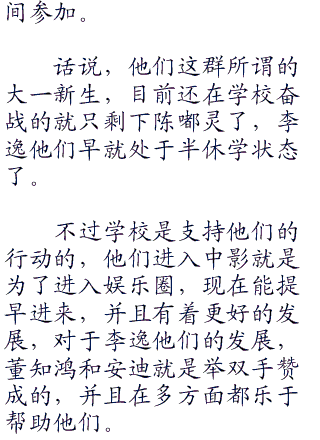 间参加。
话说，他们这群所谓的
大一新生，目前还在学校奋
战的就只剩下陈嘟灵了，李
逸他们早就处于半休学状态
了。
不过学校是支持他们的
行动的，他们进入中影就是
为了进入娱乐圈，现在能提
早进来，并且有着更好的发
展，对于李逸他们的发展，
董知鸿和安迪就是举双手赞
成的，并且在多方面都乐于
帮助他们。